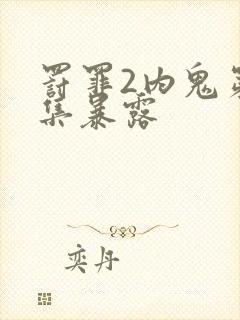 罚罪2内鬼第
集暴露
奕丹